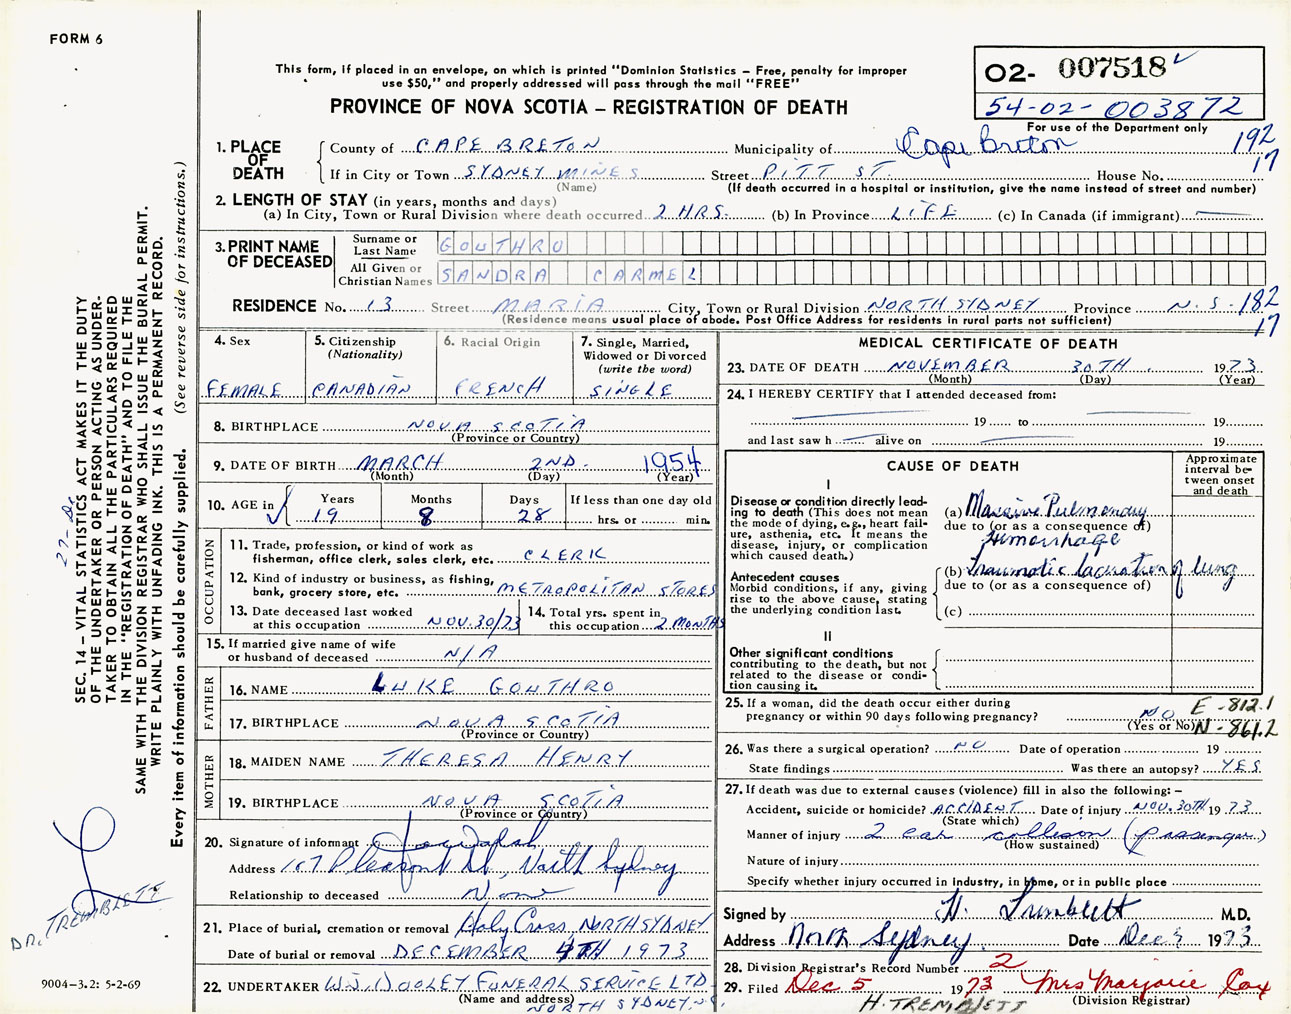 FORM 6
This form, if placed in an envelope, on which is printed "Dominion Statistics – Free, penalty for improper
use $50," and properly addressed will pass through the mail "FREE"
PROVINCE OF NOVA SCOTIA – REGISTRATION OF DEATH
02- 007518
54-02-003872
For use of the Department only
192
17
1. PLACE OF DEATH
County of CAPE BRETON Municipality of Cape Breton
If in City or Town SYDNEY MINES Street PITT ST. House No.
(Name) (If death occurred in a hospital or institution, give the name instead of street and number)
2. LENGTH OF STAY (in years, months and days)
(a) In City, Town or Rural Division where death occurred 2 HRS. (b) In Province LIFE (c) In Canada (if immigrant)
3. PRINT NAME OF DECEASED
Surname or Last Name GOUTHRO
All Given or Christian Names SANDRA CARMEL
RESIDENCE No. 13 Street MARIA City, Town or Rural Division NORTH SYDNEY Province N.S. 182
17
(Residence means usual place of abode. Post Office Address for residents in rural parts not sufficient)
4. Sex
FEMALE
5. Citizenship
(Nationality)
CANADIAN
6. Racial Origin
FRENCH
7. Single, Married,
Widowed or Divorced
(write the word)
SINGLE
8. BIRTHPLACE NOVA SCOTIA
(Province or Country)
9. DATE OF BIRTH MARCH 2ND. 1954
(Month) (Day) (Year)
10. AGE in
Years Months Days If less than one day old
19 8 28 hrs. or min.
OCCUPATION
11. Trade, profession, or kind of work as
fisherman, office clerk, sales clerk, etc. CLERK
12. Kind of industry or business, as fishing,
bank, grocery store, etc. METROPOLITAN STORES
13. Date deceased last worked
at this occupation NOV. 30/73
14. Total yrs. spent in
this occupation 2 MONTHS
15. If married give name of wife
or husband of deceased N/A
FATHER
16. NAME LUKE GOUTHRO
17. BIRTHPLACE NOVA SCOTIA
(Province or Country)
MOTHER
18. MAIDEN NAME THERESA HENRY
19. BIRTHPLACE NOVA SCOTIA
(Province or Country)
20. Signature of informant Walsh
Address 107 Pleasant St, North Sydney
Relationship to deceased None
21. Place of burial, cremation or removal Holy Cross, NORTH SYDNEY
Date of burial or removal DECEMBER 4TH 1973
22. UNDERTAKER W.J. DOOLEY FUNERAL SERVICE LTD.
(Name and address)
NORTH SYDNEY, N.S.
MEDICAL CERTIFICATE OF DEATH
23. DATE OF DEATH NOVEMBER 30TH. 1973
(Month) (Day) (Year)
24. I HEREBY CERTIFY that I attended deceased from:
19 to 19
and last saw h alive on 19
CAUSE OF DEATH
Approximate
interval be-
tween onset
and death
I
Disease or condition directly lead-
ing to death (This does not mean
the mode of dying, e.g., heart fail-
ure, asthenia, etc. It means the
disease, injury, or complication
which caused death.)
(a) Massive Pulmonary
due to (or as a consequence of)
Hemorrhage
Antecedent causes
Morbid conditions, if any, giving
rise to the above cause, stating
the underlying condition last.
(b) Traumatic laceration of lung
due to (or as a consequence of)
(c)
II
Other significant conditions
contributing to the death, but not
related to the disease or condi-
tion causing it.
25. If a woman, did the death occur either during
pregnancy or within 90 days following pregnancy? NO
(Yes or No)
E - 812.1
N - 861.2
26. Was there a surgical operation? NO Date of operation 19
State findings Was there an autopsy? YES
27. If death was due to external causes (violence) fill in also the following: –
Accident, suicide or homicide? ACCIDENT Date of injury NOV. 30TH 1973
(State which)
Manner of injury 2 car collision (passenger)
(How sustained)
Nature of injury
Specify whether injury occurred in industry, in home, or in public place
Signed by H. Tremblett M.D.
Address North Sydney Date Dec 1973
28. Division Registrar's Record Number 2
29. Filed Dec 5 1973 Mrs Marjorie Cox
(Division Registrar)
H. TREMBLETT
SEC. 14 – VITAL STATISTICS ACT MAKES IT THE DUTY
OF THE UNDERTAKER OR PERSON ACTING AS UNDER-
TAKER TO OBTAIN ALL THE PARTICULARS REQUIRED
IN THE "REGISTRATION OF DEATH" AND TO FILE THE
SAME WITH THE DIVISION REGISTRAR WHO SHALL ISSUE THE BURIAL PERMIT.
WRITE PLAINLY WITH UNFADING INK. THIS IS A PERMANENT RECORD.
Every item of information should be carefully supplied. (See reverse side for instructions.)
DR. TREMBLETT
9004–3.2: 5-2-69